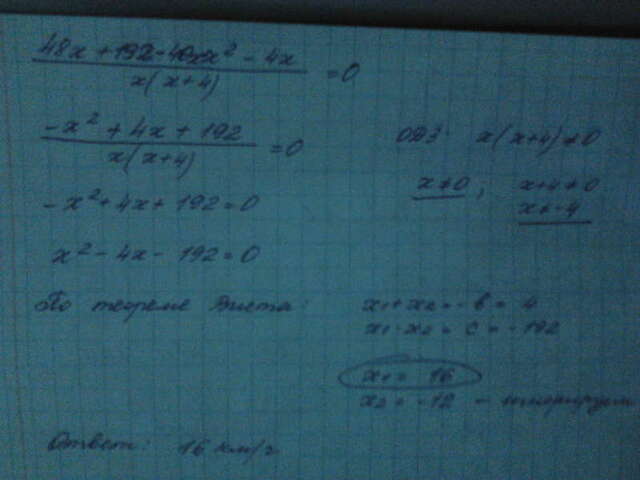 48x + 192 - 40x - x² - 4x / x(x+4) = 0
-x² + 4x + 192 / x(x+4) = 0
ОДЗ: x(x+4) ≠ 0
x ≠ 0; x+4 ≠ 0
x ≠ -4
-x² + 4x + 192 = 0
x² - 4x - 192 = 0
По теореме Виета: x₁+x₂ = -b = 4
x₁·x₂ = c = -192
x₁ = 16
x₂ = -12 - игнорируем
Ответ: 16 км/г